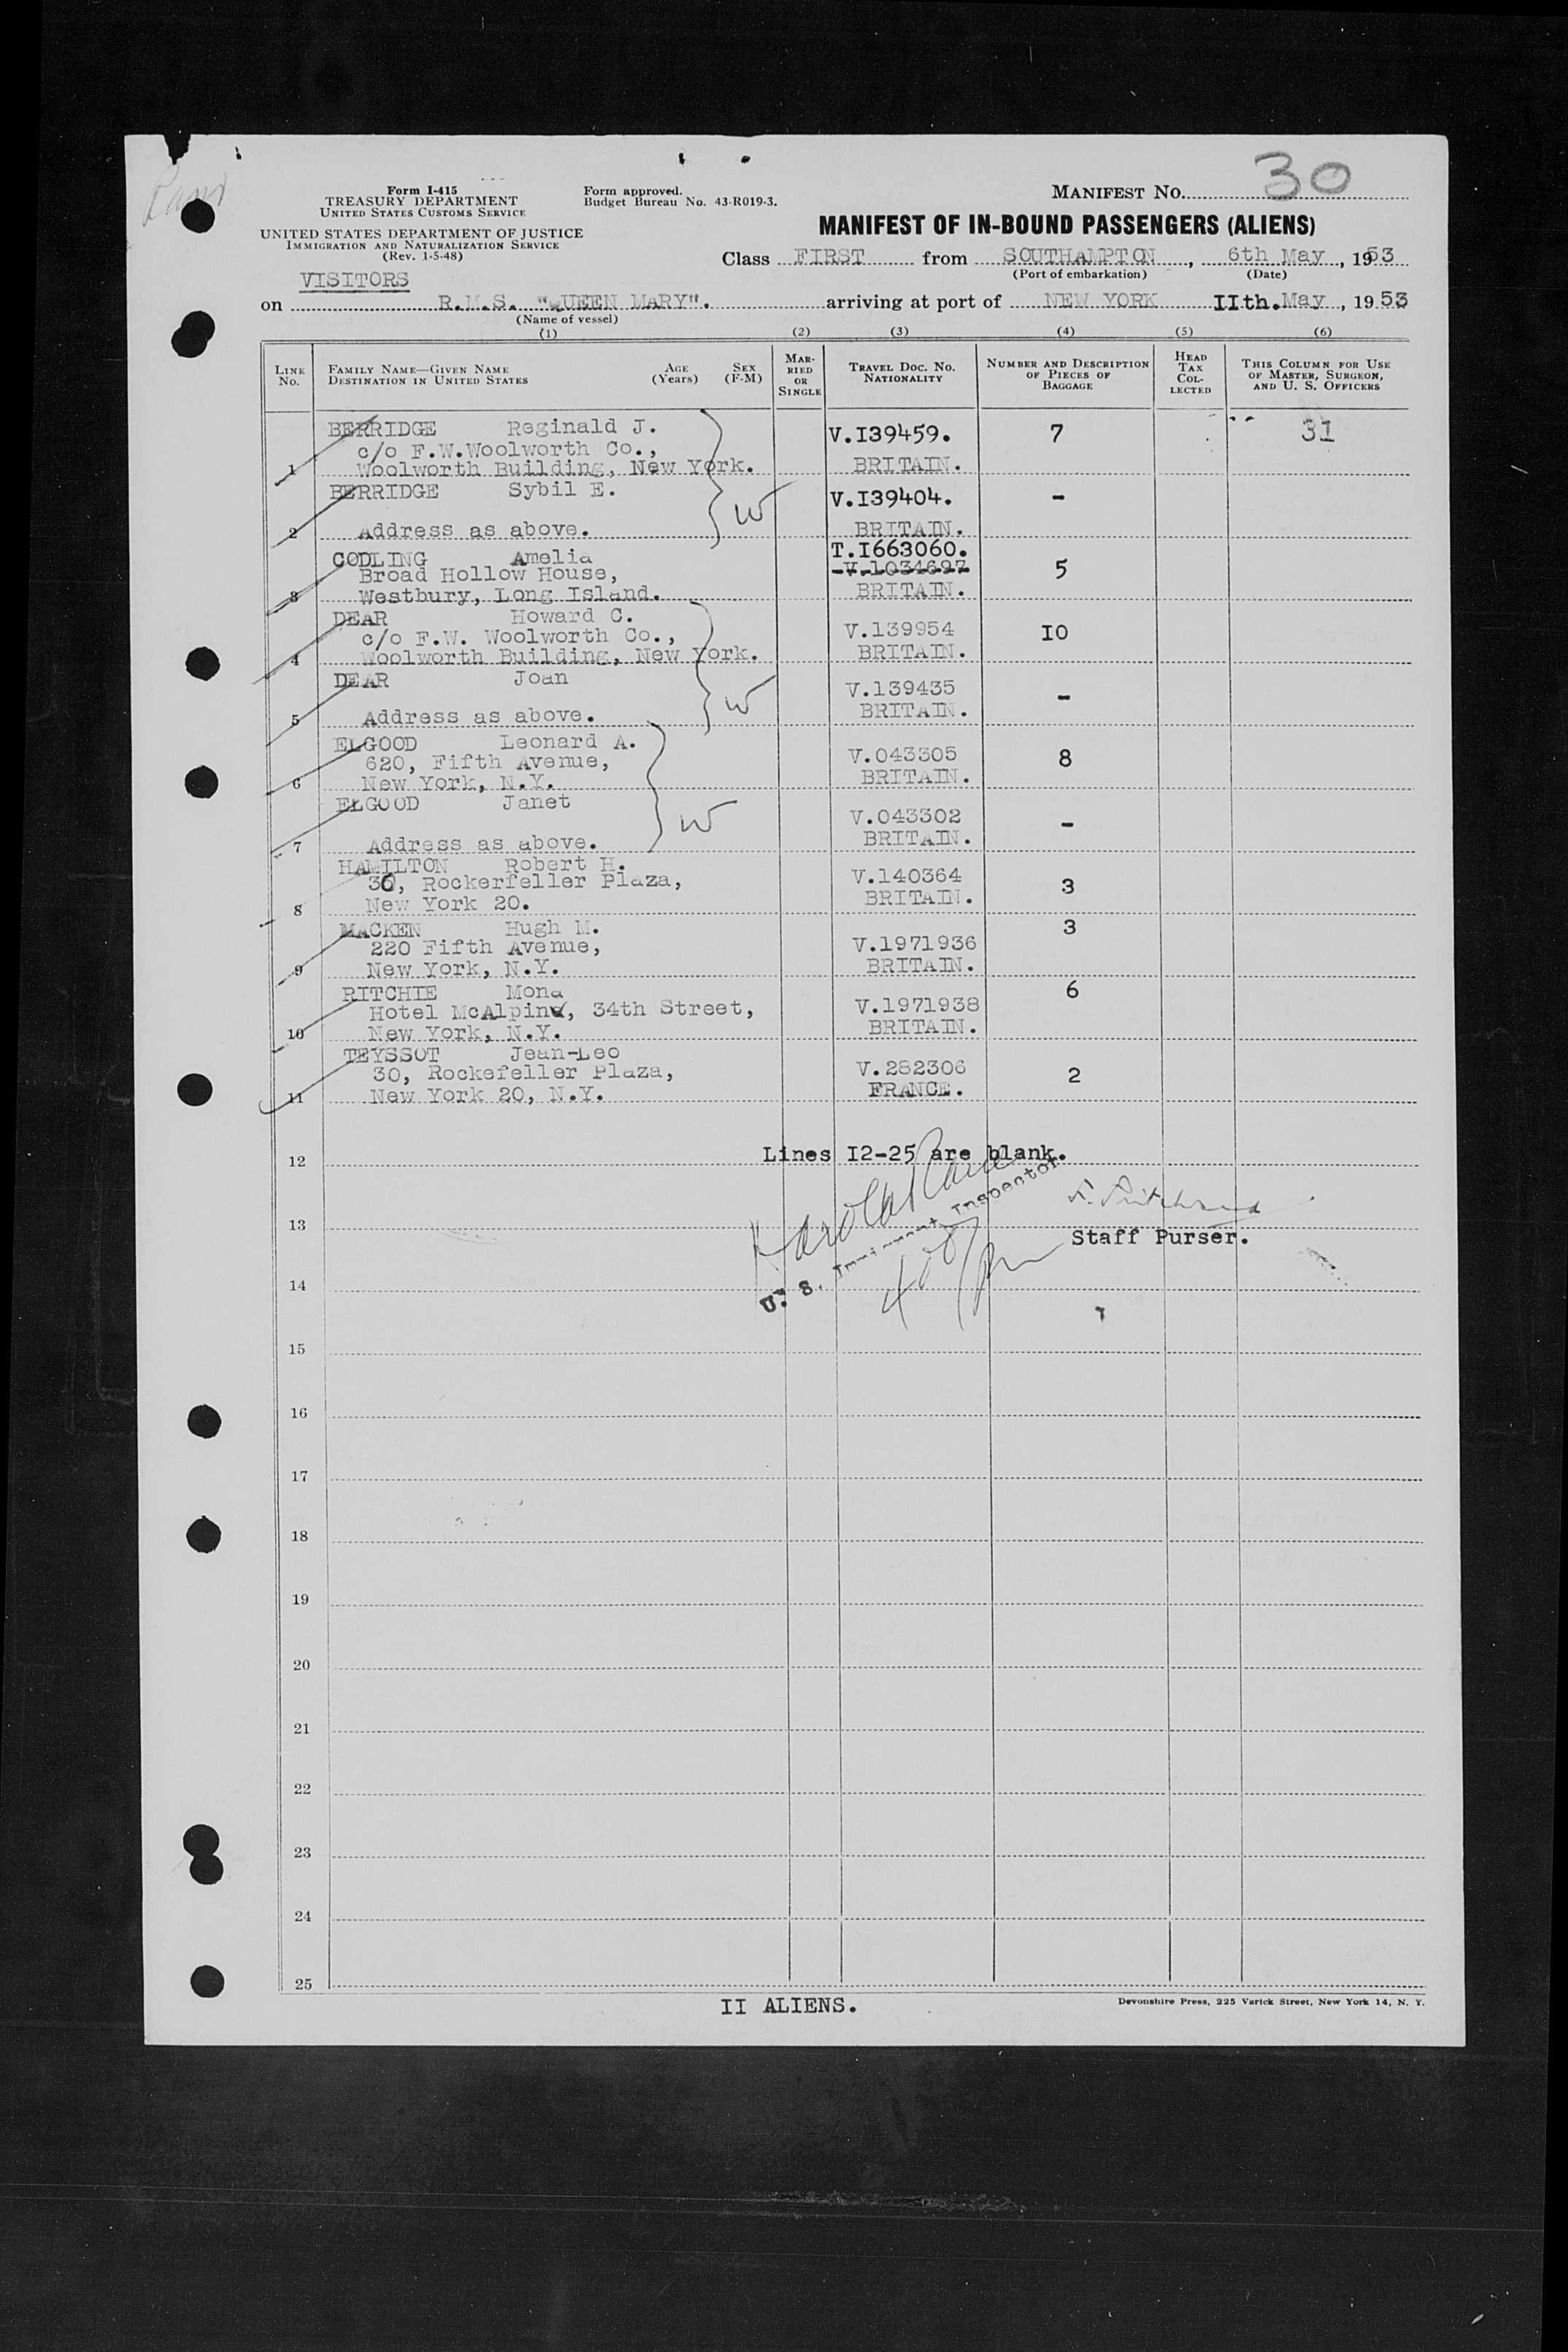 30
Form I-415
TREASURY DEPARTMENT
UNITED STATES CUSTOMS SERVICE
UNITED STATES DEPARTMENT OF JUSTICE
IMMIGRATION AND NATURALIZATION SERVICE
(Rev. 1-5-48)
Form approved.
Budget Bureau No. 43-R019-3.
MANIFEST NO.
MANIFEST OF IN-BOUND PASSENGERS (ALIENS)
Class FIRST from SOUTHAMPTON, 6th May, 1953
(Port of embarkation) (Date)
VISITORS
on R.M.S. "QUEEN MARY". arriving at port of NEW YORK IIth.May, 1953
(Name of vessel)
(1) (2) (3) (4) (5) (6)
LINE NO. FAMILY NAME—GIVEN NAME DESTINATION IN UNITED STATES AGE (Years) SEX (F-M) MARRIED OR SINGLE TRAVEL DOC. NO. NATIONALITY NUMBER AND DESCRIPTION OF PIECES OF BAGGAGE HEAD TAX COLLECTED THIS COLUMN FOR USE OF MASTER, SURGEON, AND U. S. OFFICERS
BERRIDGE Reginald J. V.I39459. 7 31
c/o F.W.Woolworth Co.,
1 Woolworth Building, New York. BRITAIN.
BERRIDGE Sybil E. V.I39404. -
W
2 Address as above. BRITAIN.
CODLING Amelia T.I663060.
Broad Hollow House, V.1034697 5
3 Westbury, Long Island. BRITAIN.
DEAR Howard C.
c/o F.W. Woolworth Co., V.139954 IO
4 Woolworth Building, New York. BRITAIN.
DEAR Joan V.139435 -
W
5 Address as above. BRITAIN.
ELGOOD Leonard A.
620, Fifth Avenue, V.043305 8
6 New York, N.Y. BRITAIN.
ELGOOD Janet V.043302 -
W
7 Address as above. BRITAIN.
HAMILTON Robert H.
30, Rockerfeller Plaza, V.140364 3
8 New York 20. BRITAIN.
MACKEN Hugh M. 3
220 Fifth Avenue, V.1971936
9 New York, N.Y. BRITAIN.
RITCHIE Mona 6
Hotel McAlpin, 34th Street, V.1971938
10 New York, N.Y. BRITAIN.
TEYSSOT Jean-Leo
30, Rockefeller Plaza, V.282306 2
11 New York 20, N.Y. FRANCE.
12 Lines I2-25 are blank.
U. S. Immigrant Inspector
13 Staff Purser.
14
15
16
17
18
19
20
21
22
23
24
25
II ALIENS.
Devonshire Press, 225 Varick Street, New York 14, N. Y.